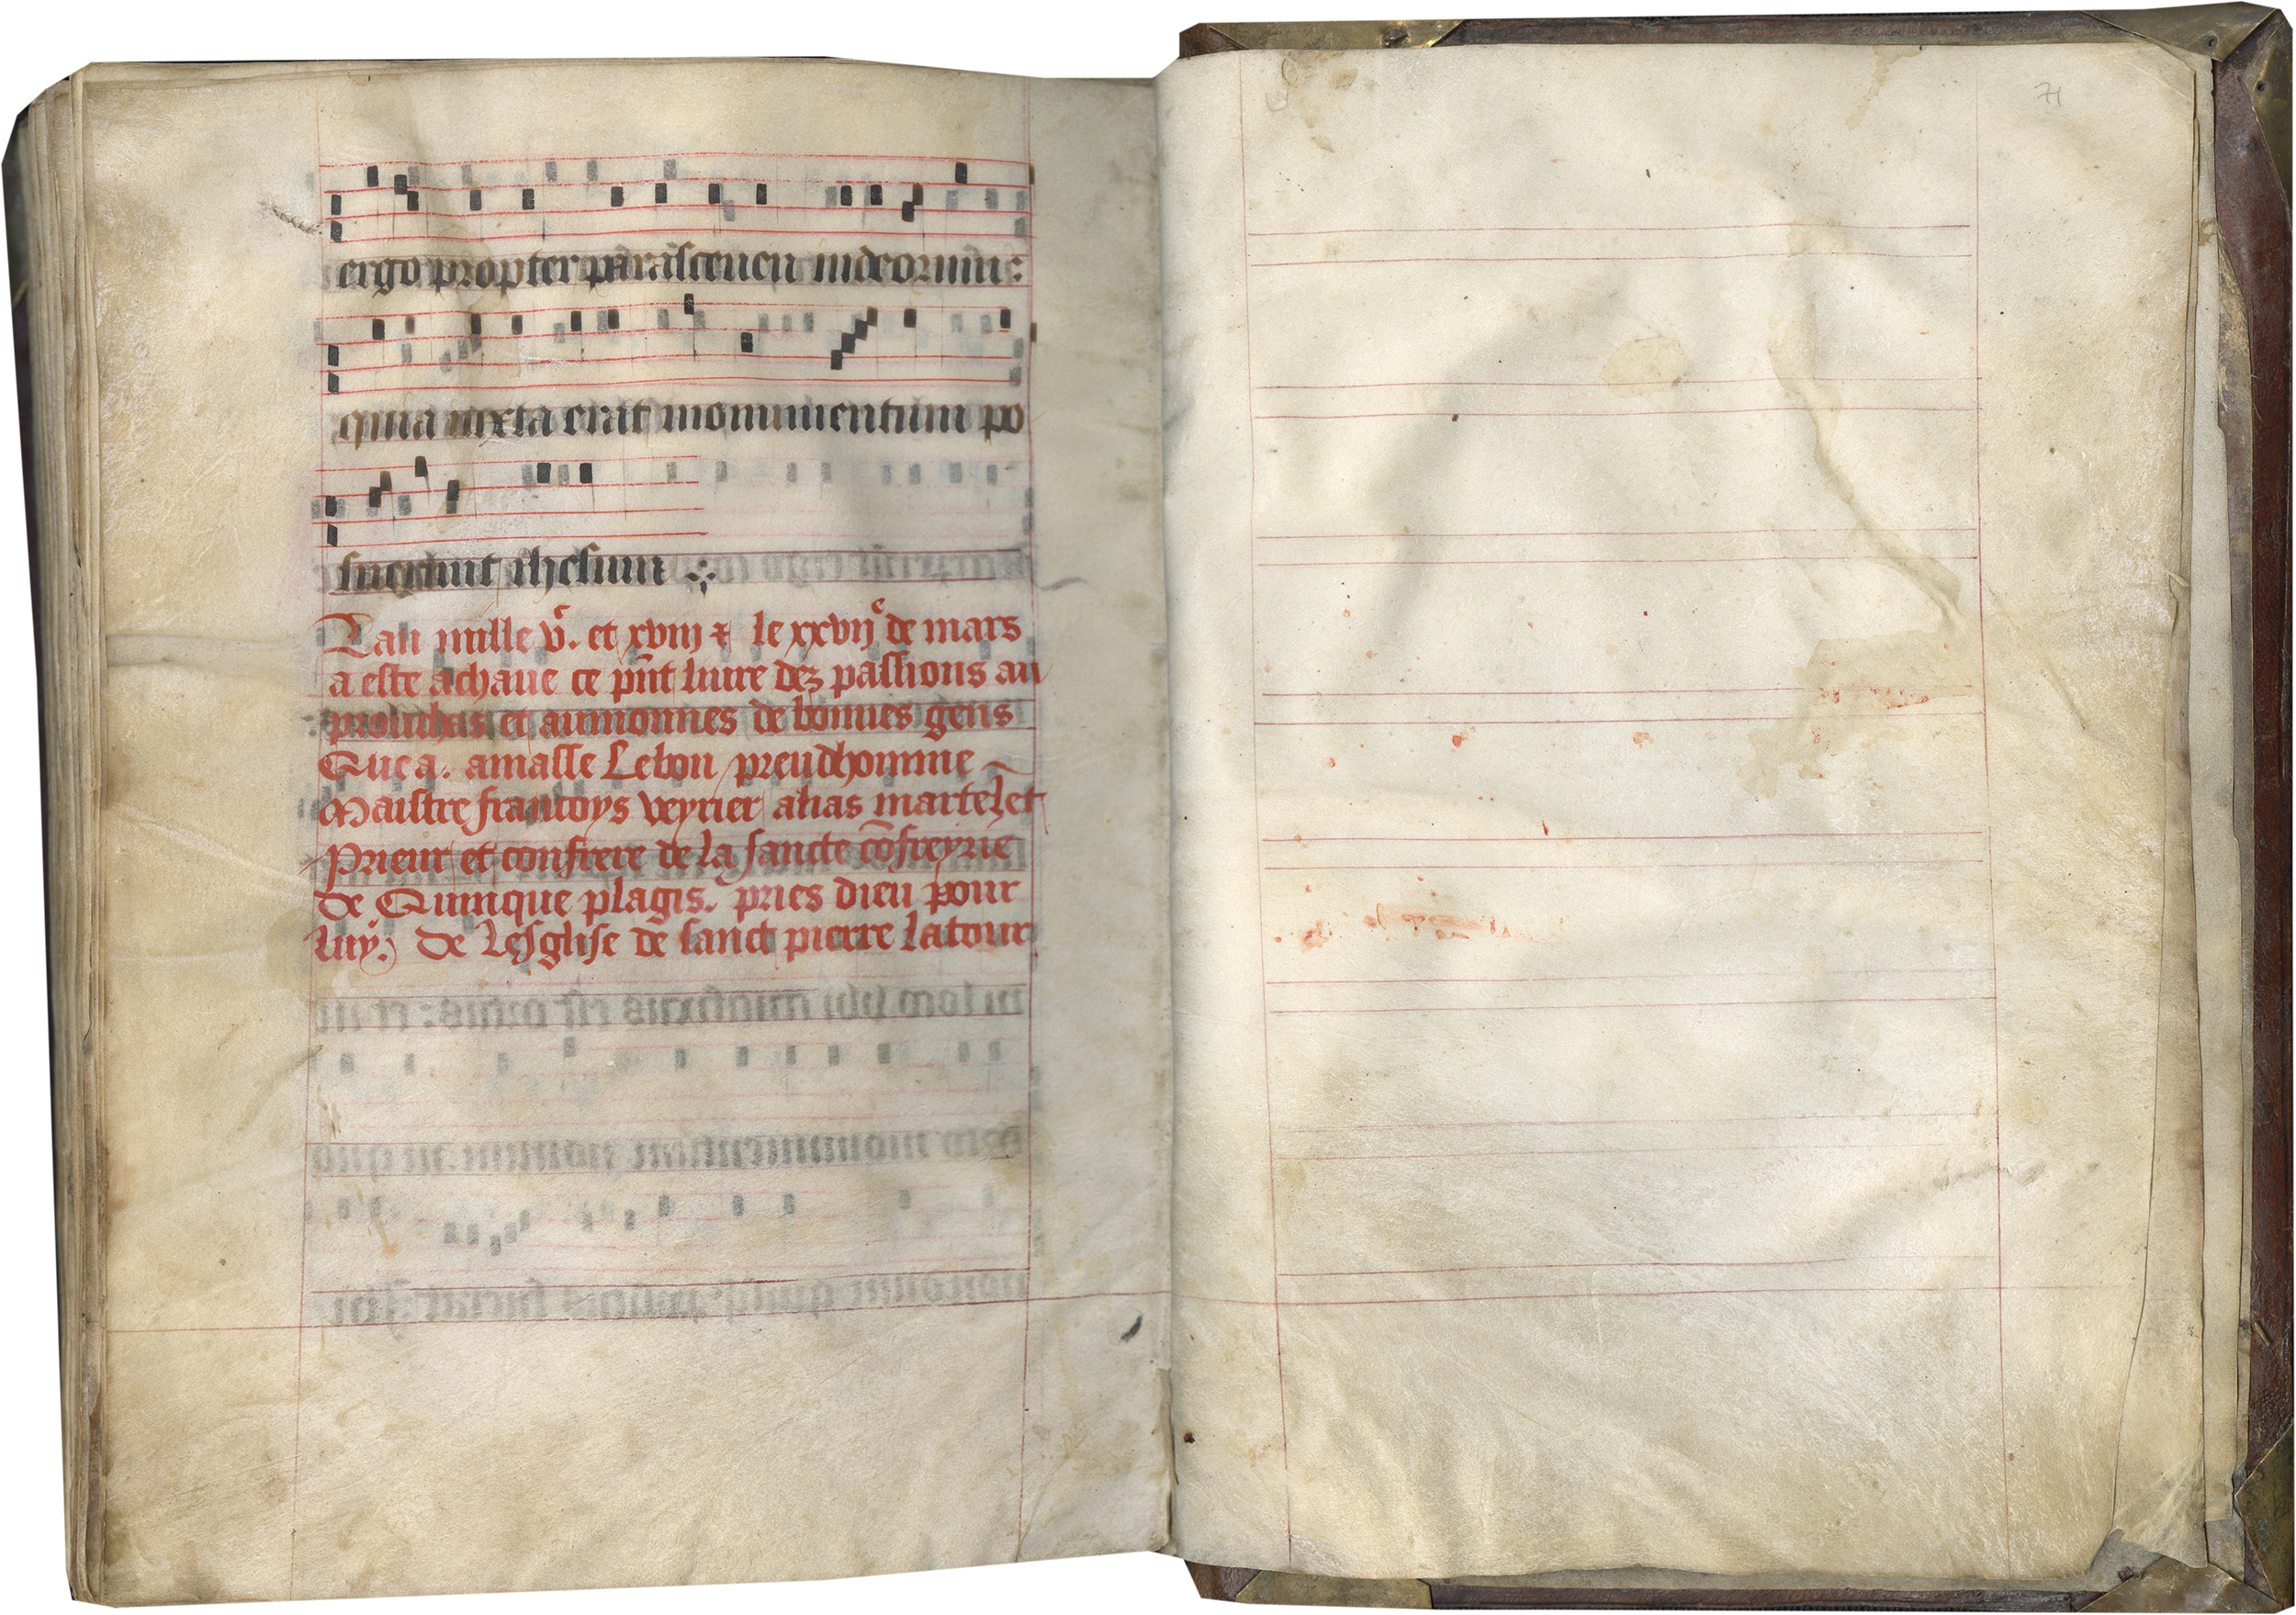 ergo propter parasceuen iudeorum:
quia iuxta erat monumentum po
suerunt ihesum
Lan mille vc. et xviij & le xxvije de mars
a este achaue ce pnt liure dez passions au
prouchas et aumonnes de bonnes gens
Que a. amasse Lebon preudhomme
Maistre francoys veyrier alias martelet
Prieur et confrere de la sancte cōfreyrie
de Quinque plagis. pries dieu pour
luy. De Lesglise de sanct pierre latour
71